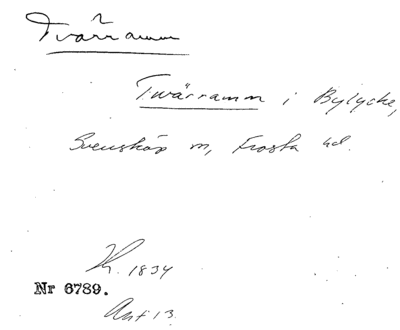 Tvärramm
Tvärramm i Bylycke,
Svensköp sn, Frosta hd.
K. 1834
Nr 6789.
Akt 13.